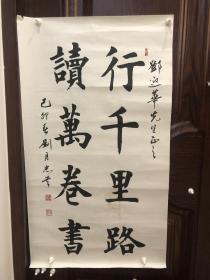 鄧迎華先生正之
行千里路
讀萬卷書
己卯春劉月忠書